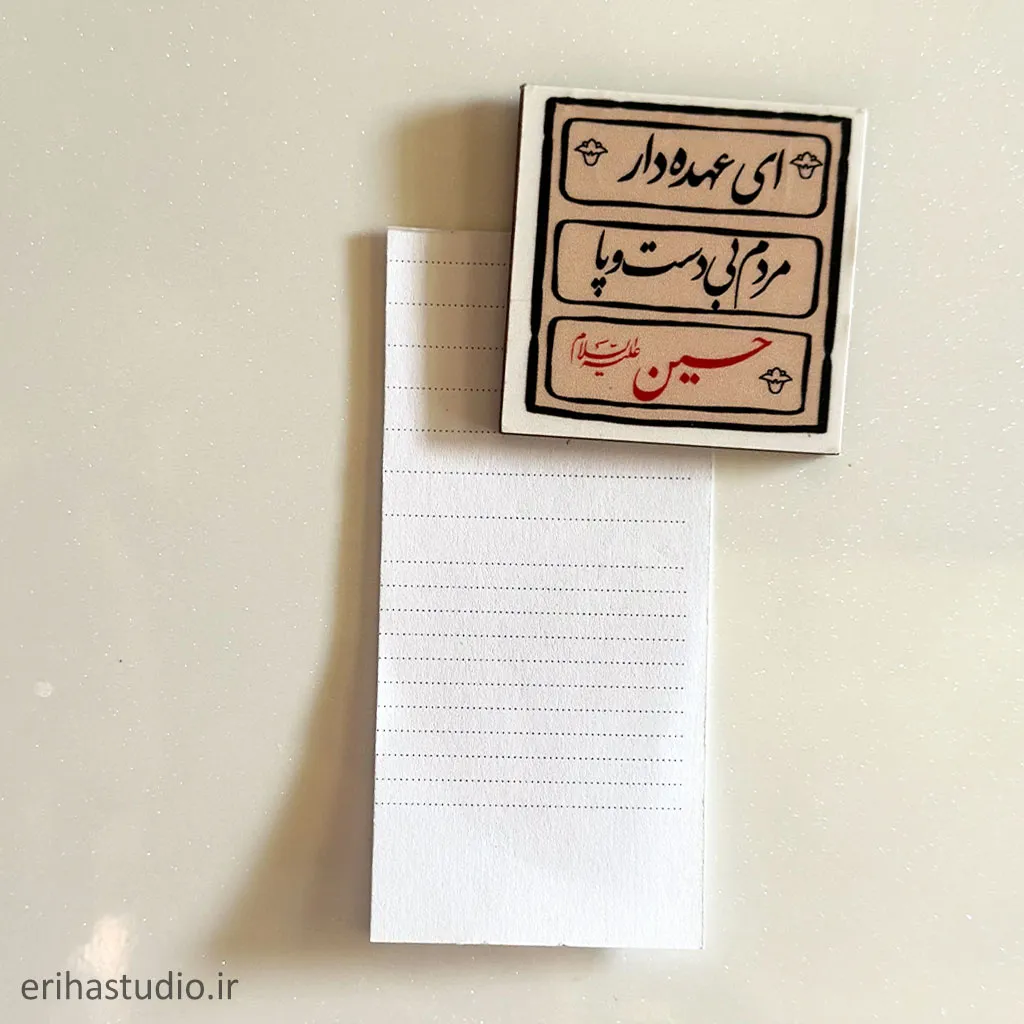 ای عهده دار
مردم بی دست و پا
حسین علیه السلام
erihastudio.ir